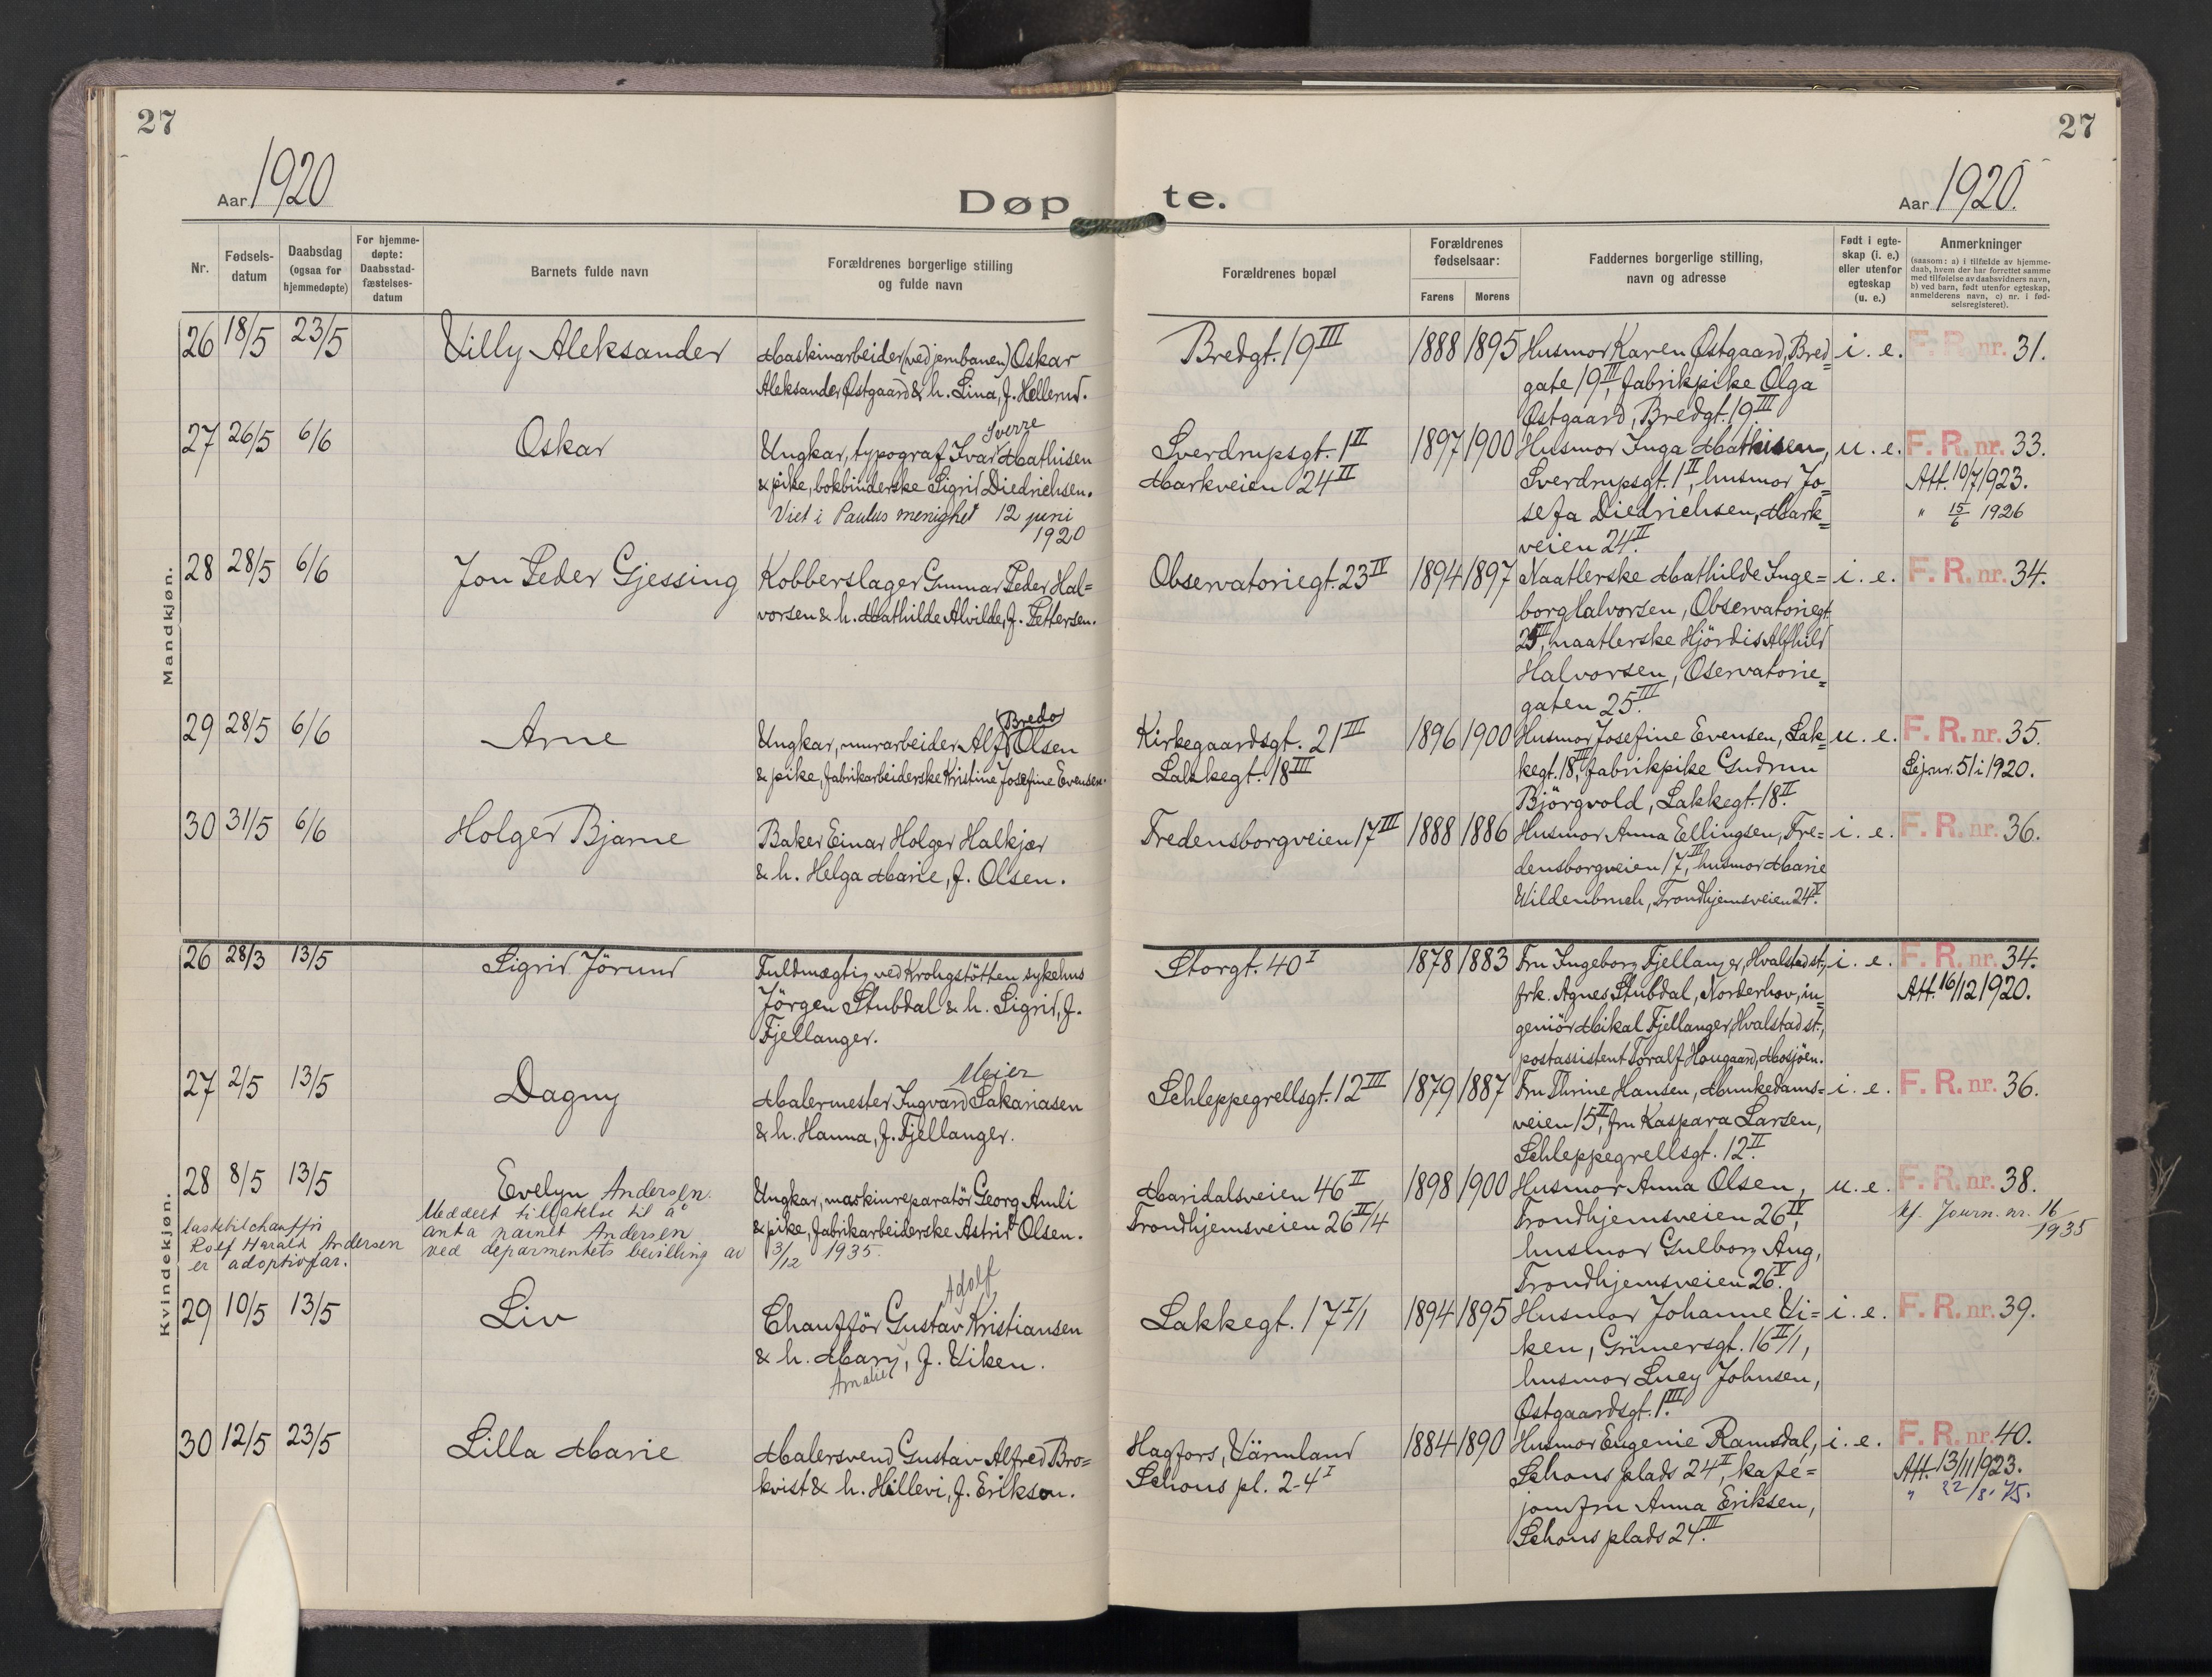 27
27
Aar 1920
Døp te.
Aar 1920.
Nr.
Fødsels-
datum
Daabsdag
(ogsaa for
hjemmedøpte)
For hjemme-
døpte:
Daabsstad-
fæstelses-
datum
Barnets fulde navn
Forældrenes borgerlige stilling
og fulde navn
Forældrenes bopæl
Forældrenes
fødselsaar:
Farens
Morens
Faddernes borgerlige stilling,
navn og adresse
Født i egte-
skap (i. e.)
eller utenfor
egteskap
(u. e.)
Anmerkninger
(saasom: a) i tilfælde av hjemme-
daab, hvem der har forrettet samme
med tilføielse av daabsvidners navn,
b) ved barn, født utenfor egteskap,
anmelderens navn, c) nr. i fød-
selsregisteret).
Mandkjøn.
26 18/5 23/5 Villy Aleksander
Maskinarbeider (ved jernbanen) Oskar
Aleksander Østgaard & h. Lina, f. Hellerud.
Bredgt. 19 III
1888 1895
Husmor Karen Østgaard, Bred=
gate 19 III, fabrikpike Olga
Østgaard, Bredgt. 19 III
i. e.
F. R. nr. 31.
27 26/5 6/6 Oskar
Sverre
Ungkar, typograf Ivar Mathisen
& pike, bokbinderske Sigrid Diedrichsen.
Viet i Paulus menighet 12 juni
1920
Sverdrupsgt. 1 II
Markveien 24 II
1897 1900
Husmor Inga Mathisen,
Sverdrupsgt. 1 II, husmor Jo=
sefa Diedrichsen, Mark=
veien 24 II.
u. e.
F. R. nr. 33.
Att. 10/7 1923.
" 15/6 1926
28 28/5 6/6 Jon Peder Gjessing
Kobberslager Gunnar Peder Hal=
vorsen & h. Mathilde Alvilde, f. Pettersen.
Observatoriegt. 23 IV
1894 1897
Naatlerske Mathilde Inge=
borg Halvorsen, Observatoriegt.
25 III, naatlerske Hjördis Alfhild
Halvorsen, Oservatorie=
gaten 25 III.
i. e.
F. R. nr. 34.
29 28/5 6/6 Arne
Bredo
Ungkar, murarbeider Alf Olsen
& pike, fabrikarbeiderske Kristine Josefine Evensen.
Kirkegaardsgt. 21 III
Lakkegt. 18 III
1896 1900
Husmor Josefine Evensen, Lak=
kegt. 18 III, fabrikpike Gudrun
Björgvold, Lakkegt. 18 II.
u. e.
F. R. nr. 35.
Lejnr. 51 i 1920.
30 31/5 6/6 Holger Bjarne
Baker Einar Holger Halkjær
& h. Helga Marie, f. Olsen.
Fredensborgveien 17 III
1888 1886
Husmor Anna Eellingsen, Fre=
densborgveien 17 III, husmor Marie
Wildenbruch, Trondhjemsveien 24 V.
i. e.
F. R. nr. 36.
Kvindekjøn.
26 28/3 13/5 Sigrid Jörund
Fuldmægtig ved Krohgstötten sykehus
Jörgen Stubdal & h. Sigrid, f.
Fjellanger.
Storgt. 40 I
1878 1883
Fru Ingeborg Fjellanger, Hvalstad st.,
frk. Agnes Stubdal, Norderhov, in=
geniör Mikal Fjellanger, Hvalstad st.,
postassistent Toralf Hougaard, Mosjöen.
i. e.
F. R. nr. 34.
Att. 16/12 1920.
27 2/5 13/5 Dagny
Meier
Malermester Ingvard Sakariasen
& h. Hanna, f. Fjellanger.
Schleppegrellsgt. 12 III
1879 1887
Fru Thrine Hansen, Munkedams=
veien 15 II, fru Kaspara Larsen,
Schleppegrellsgt. 12 II.
i. e.
F. R. nr. 36.
28 8/5 13/5 Evelyn Andersen.
Meddelt tillatelse til å
anta navnet Andersen
ved deparmentets bevilling av 3/12 1935.
lastebilchauffør
Rolf Harald Andersen
er adoptivfar.
Ungkar, maskinreparatör Georg Amli
& pike, fabrikarbeiderske Astrid Olsen.
Maridalsveien 46 II
Trondhjemsveien 26 IV/4
1898 1900
Husmor Anna Olsen,
Trondhjemsveien 26 IV,
husmor Gulborg Aug,
Trondhjemsveien 26 V.
u. e.
F. R. nr. 38.
kf. Journ. nr. 16
1935
29 10/5 13/5 Liv
Adolf
Chauffør Gustav Kristiansen
& h. Mary, f. Viken.
Amalie
Lakkegt. 17 I/1
1894 1895
Husmor Johanne Vi=
ken, Grünersgt. 16 II/1,
husmor Lucy Johnsen,
Østgaardsgt. 1 III.
i. e.
F. R. nr. 39.
30 12/5 23/5 Lilla Marie
Malersvend Gustav Alfred Bro=
kvist & h. Hillevi, f. Erikson.
Hagfors, Värmland
Schous pl. 2-4 I
1884 1890
Husmor Eugenie Ramsdal,
Schous plads 24 I, kafé=
jomfru Anna Eriksen,
Schous plads 24 III.
i. e.
F. R. nr. 40.
Att. 13/11 1923.
" 22/8. 75.